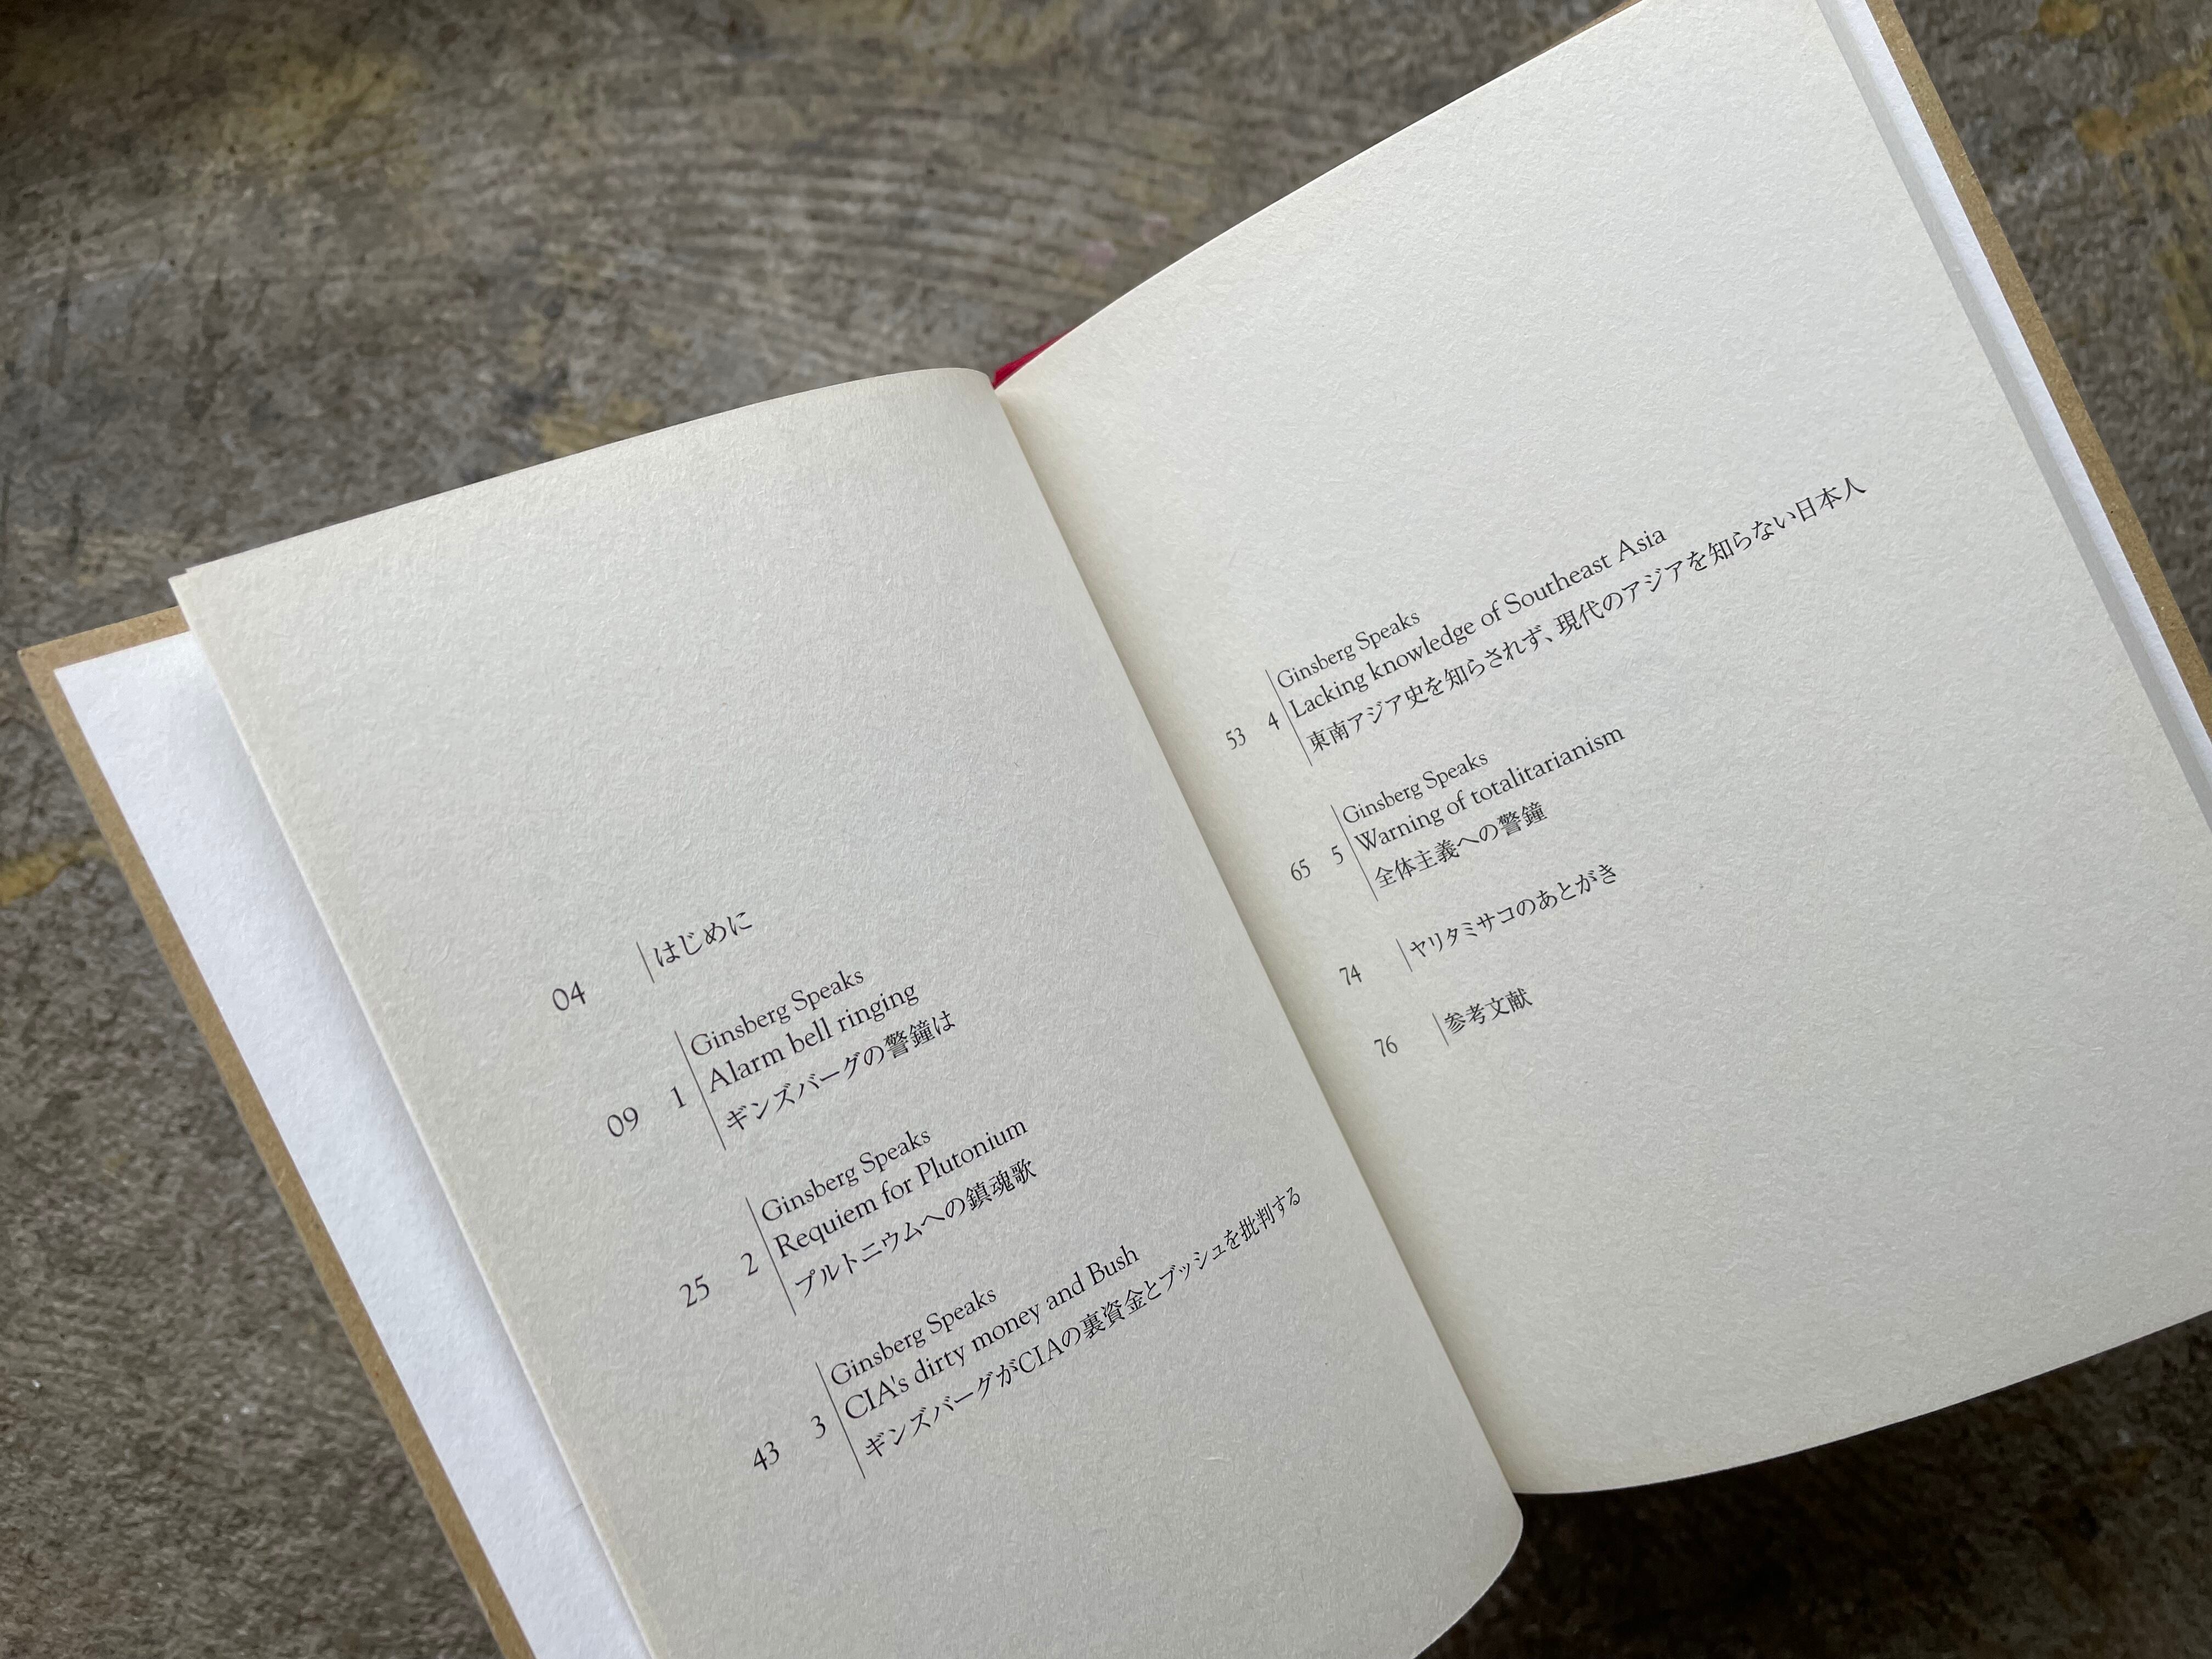 04 はじめに
Ginsberg Speaks
Alarm bell ringing
09 1 ギンズバーグの警鐘は
Ginsberg Speaks
Requiem for Plutonium
25 2 プルトニウムへの鎮魂歌
Ginsberg Speaks
CIA's dirty money and Bush
43 3 ギンズバーグがCIAの裏資金とブッシュを批判する
Ginsberg Speaks
Lacking knowledge of Southeast Asia
53 4 東南アジア史を知らされず、現代のアジアを知らない日本人
Ginsberg Speaks
Warning of totalitarianism
65 5 全体主義への警鐘
74 ヤリタミサコのあとがき
76 参考文献